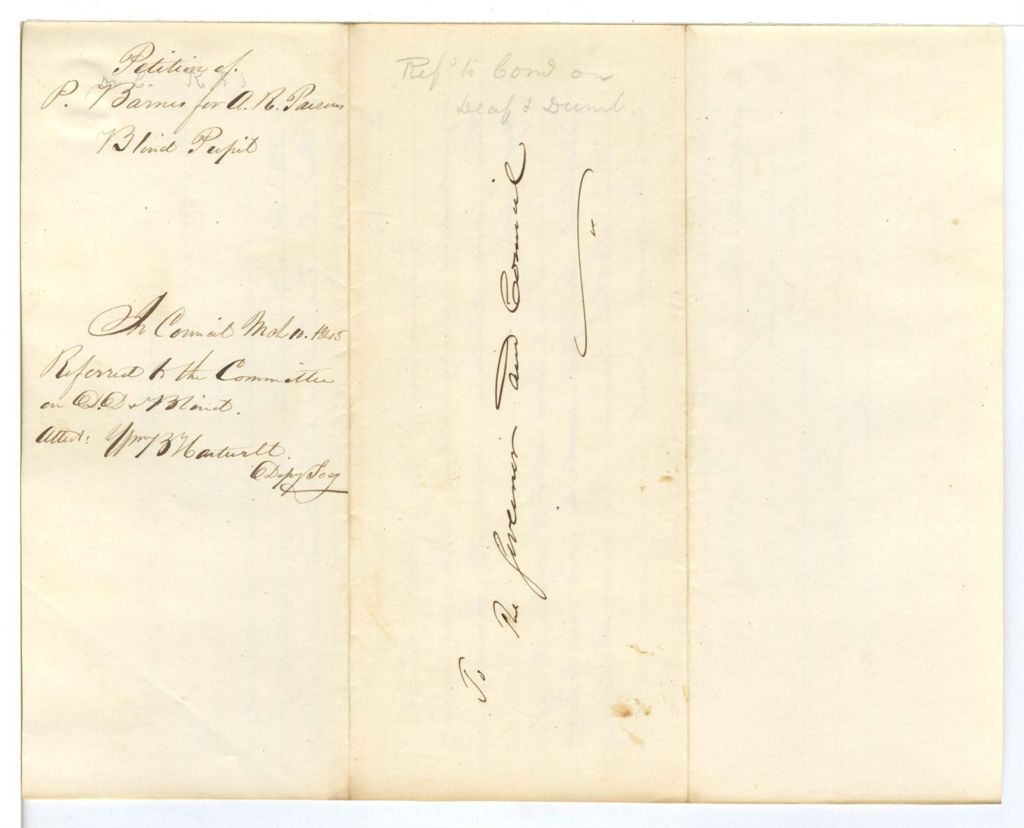 Petition of
P. Barnes for A. R. Parsons
Blind Pupil
In Council Mch 10. 1845
Referred to the Committee
on D. D & Blind.
Attest: Wm B Hartwell
Depy Secy
Refd to Comd on
Deaf & Dumb
To the Governor and Council